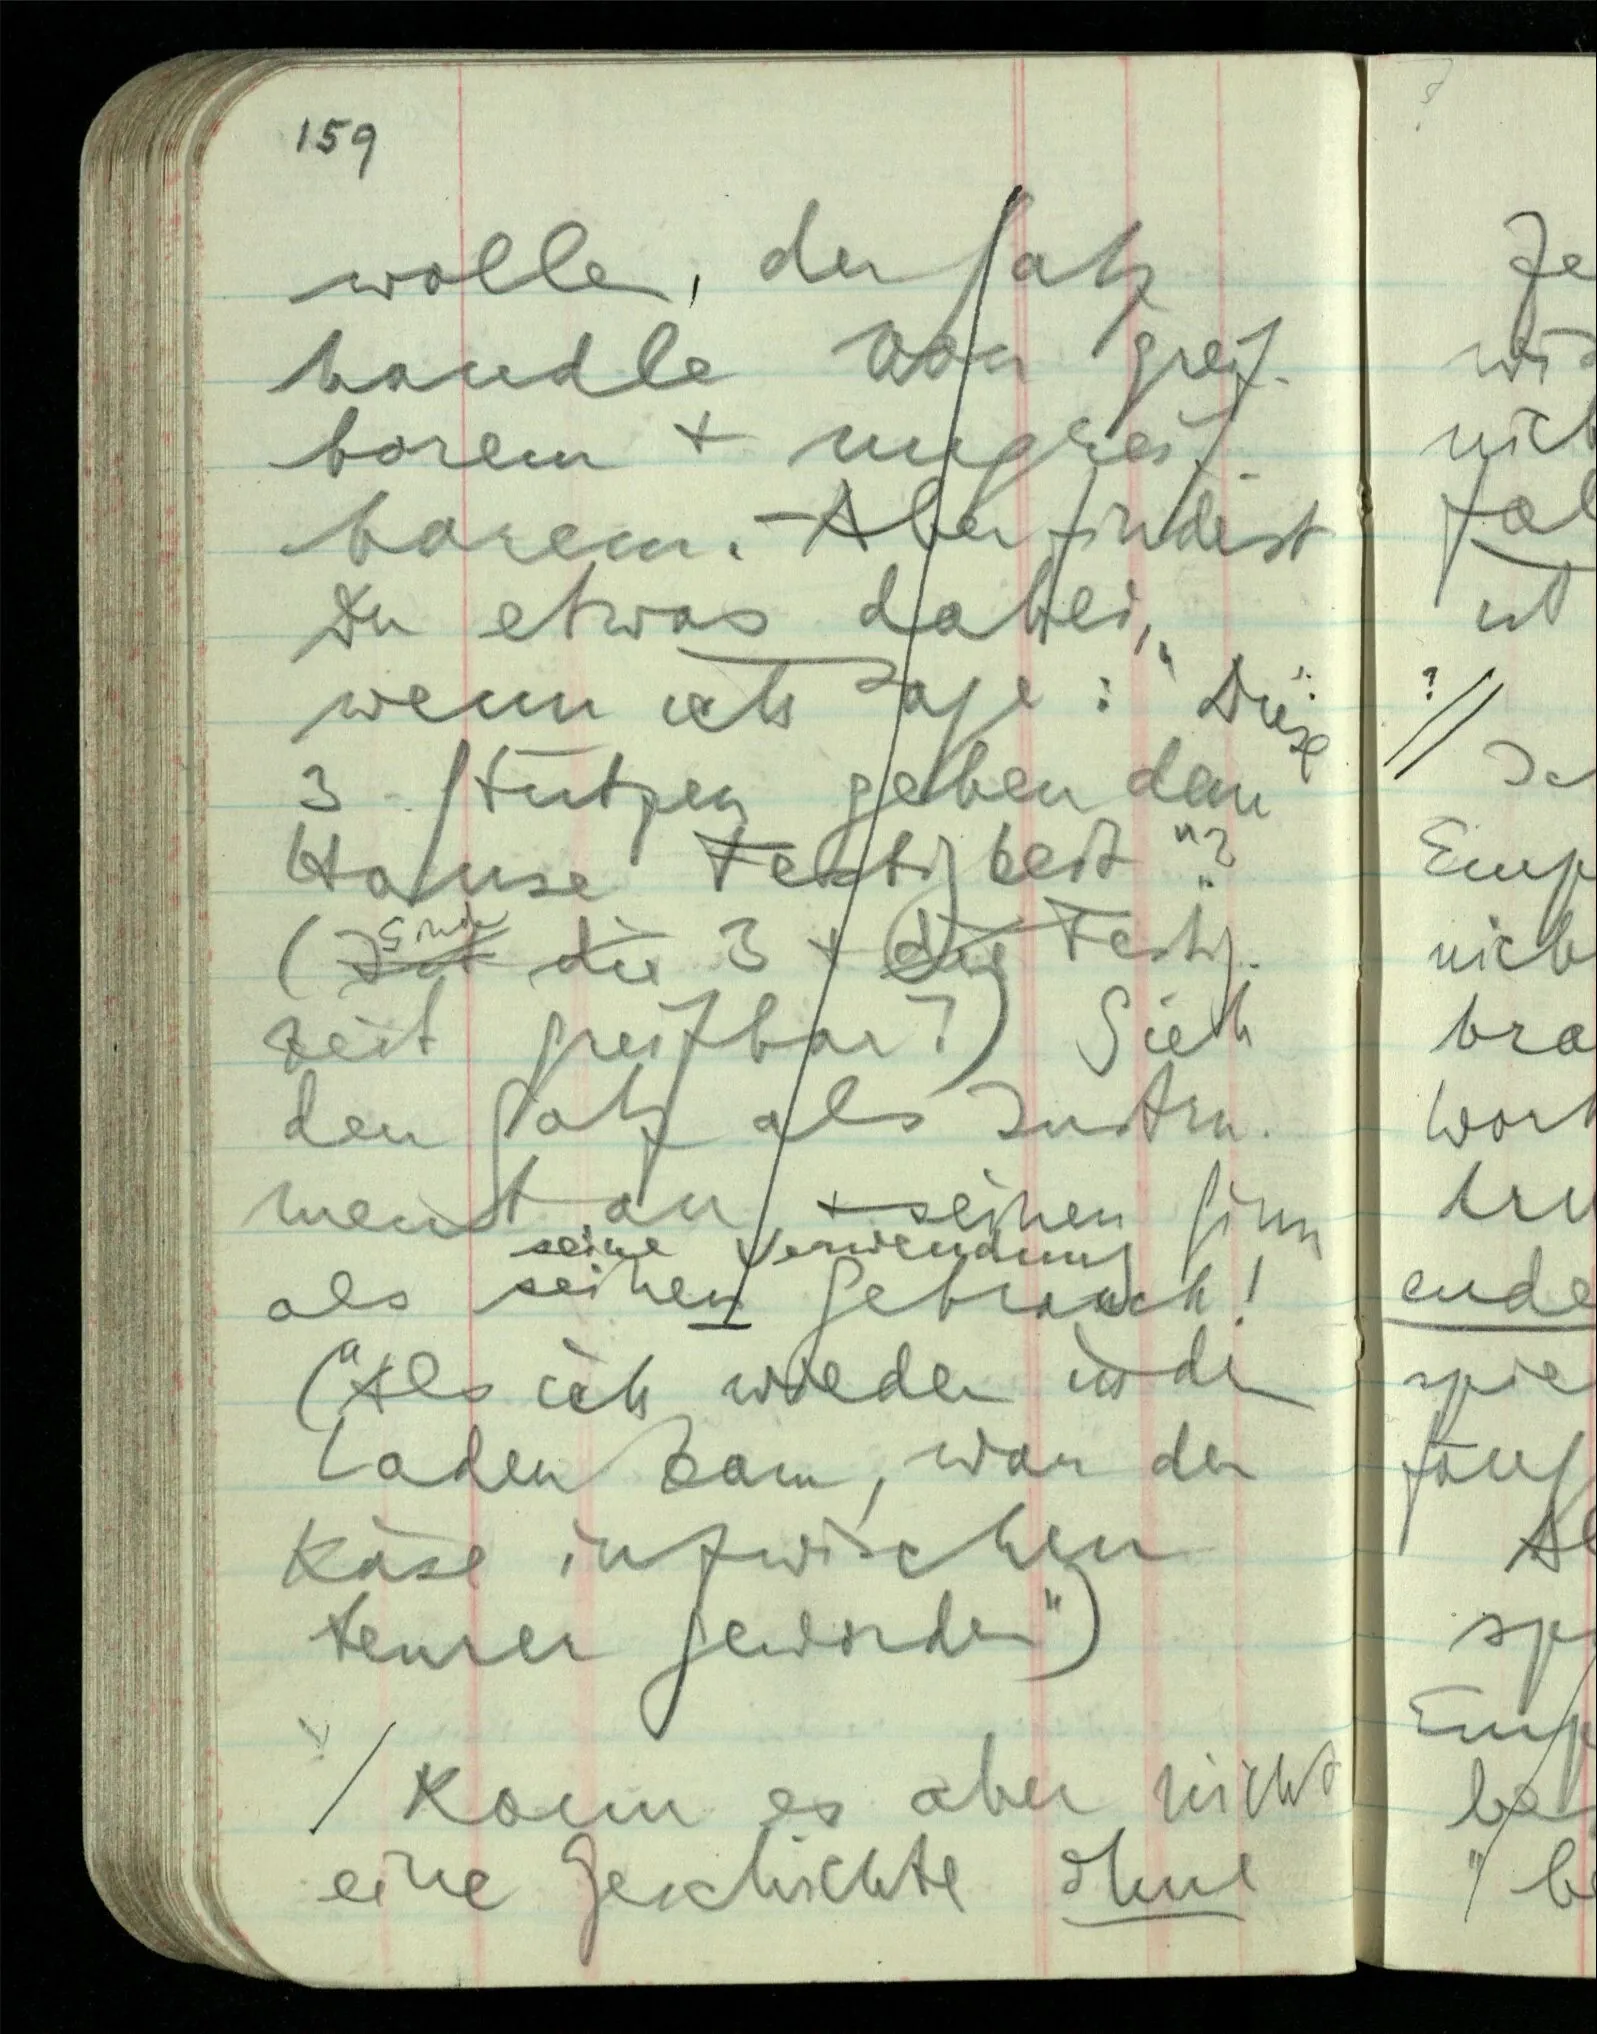 159
wolle, der Satz
handle von greif-
barem + ungreif-
barem. – Aber findest
Du etwas dabei,
wenn ich sage: "Diese
3 Stützen geben dem
Hause Festigkeit"?
(Ist Sind die 3 + die Festig-
keit greifbar?) Sieh
den Satz als Instru-
ment an, + seinen Sinn
seine Verwendung
als seinen Gebrauch!
("Als ich wieder in den
Laden kam, war der
Käse inzwischen
teurer geworden")
/ Kann es aber nicht
eine Geschichte ohne
?
Je
nich
ist
? //
Emp
nich
bra
Wort
ende
spie
sp
Emp
be
" be